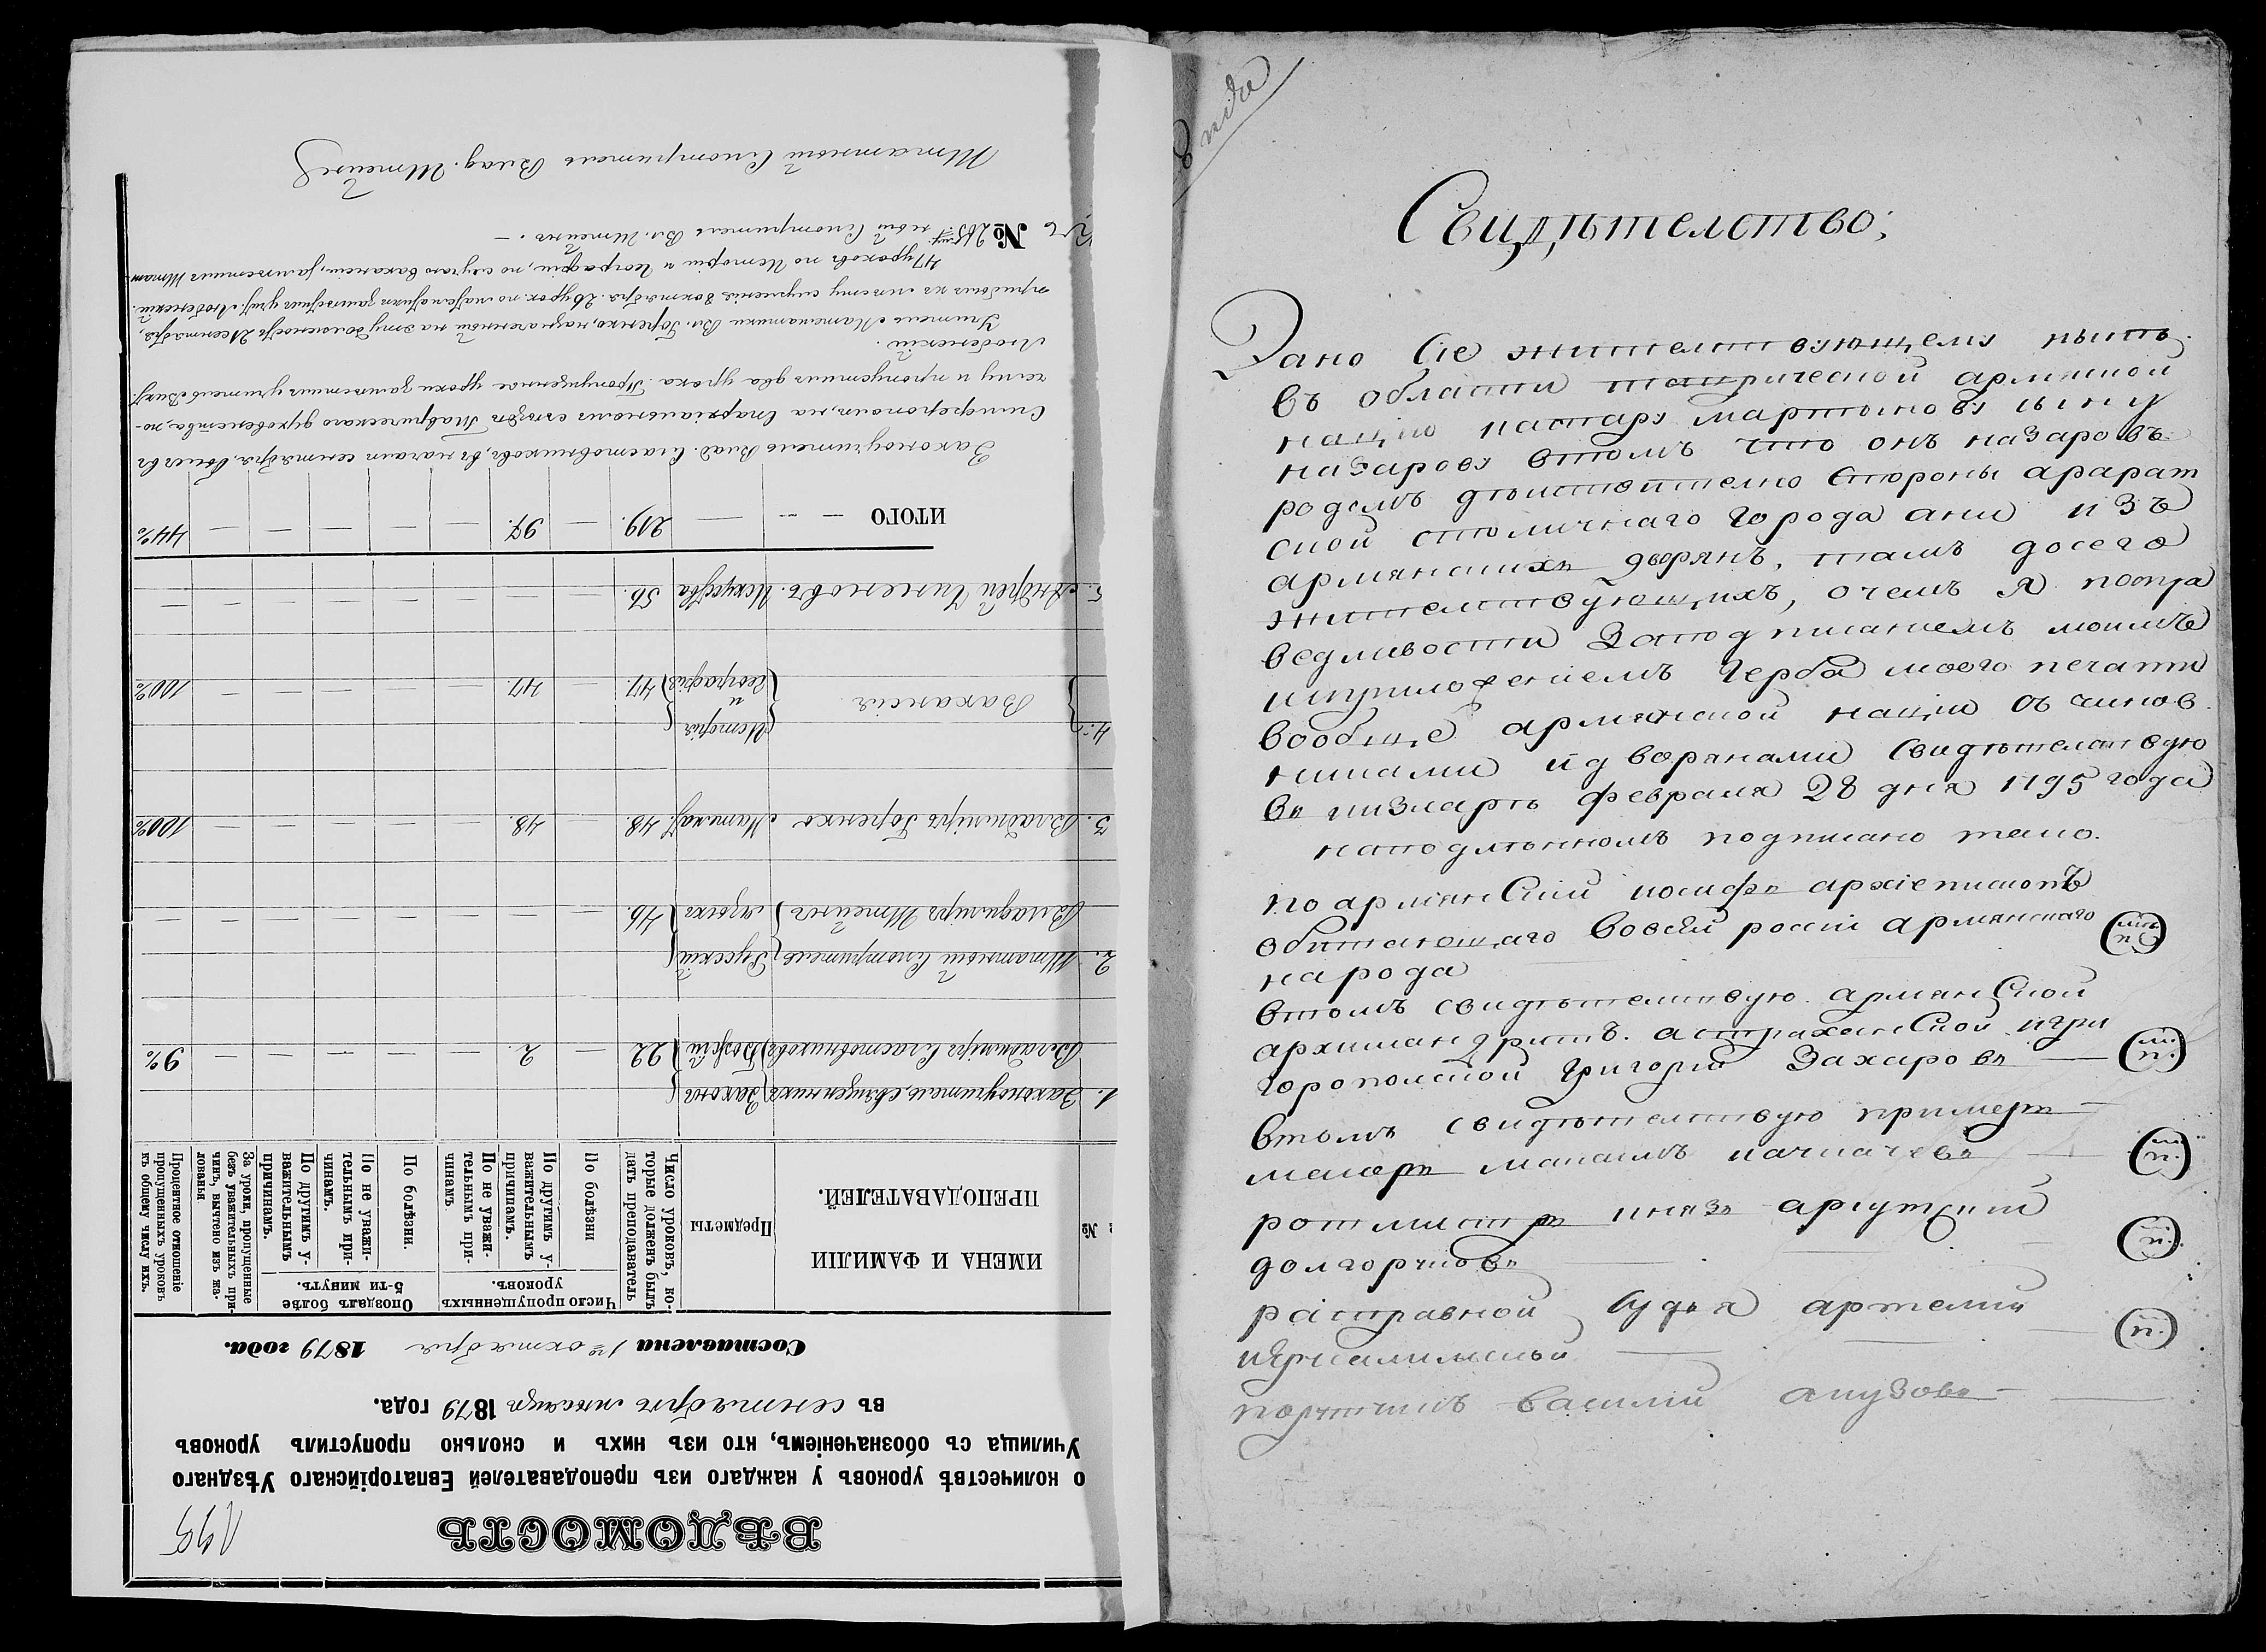 ВѢДОМОСТЬ
о количествѣ уроковъ у каждаго изъ преподавателей Евпаторійскаго Уѣзднаго
Училища съ обозначеніемъ, кто изъ нихъ и сколько пропустилъ уроковъ
въ сентябрѣ мѣсяцѣ 1879 года.
Составлена 1го октября 1879 года.
№
ИМЕНА И ФАМИЛІИ
ПРЕПОДАВАТЕЛЕЙ.
Предметы
Число уроковъ, ко-
торые долженъ былъ
дать преподаватель
Число пропущенныхъ
уроковъ.
По болѣзни
По другимъ у-
важительнымъ
причинамъ.
По не уважи-
тельнымъ при-
чинамъ
Опоздалъ болѣе
5-ти минутъ.
По болѣзни.
По не уважи-
тельнымъ при-
чинамъ.
По другимъ у-
важительнымъ
причинамъ.
За уроки, пропущенные
безъ уважительныхъ при-
чинъ, вычтено изъ жа-
лованья
Процентное отношеніе
пропущенныхъ уроковъ
къ общему числу ихъ.
1. Законоучитель, священникъ Законъ
Владиміръ Сластовниковъ Божій 22 — 2. — — — — — 9%
2. Штатный Смотритель Русскій
Владиміръ Штейнъ языкъ 46. — — — — — — — —
3. Владиміръ Горенко Математ. 48. — 48. — — — — — 100%
4. Вакансія Исторія
и
Географія 47. — 47. — — — — — 100%
5. Андрей Чиненовъ. Искусства 56. — — — — — — — —
ИТОГО — — — 219. — 97. — — — — — 44%
Законоучитель Влад. Сластовниковъ, въ началѣ сентября, былъ въ
Симферополѣ, на Епархіальномъ съѣздѣ Таврическаго духовенства, по-
чему и пропустилъ два урока. Пропущенные уроки замѣстилъ учитель
Любенскій.
Учитель Математики Вл. Горенко, назначенный на эту должность 21 сентября,
прибылъ къ мѣсту служенія октября.
47 уроковъ по Исторіи и Географіи, по случаю вакансіи, замѣстилъ Штат-
ный Смотритель Вл. Штейнъ. —
№ 265
Штатный Смотритель Влад. Штейнъ
Свидѣтелство;
Дано Сіе жителствующему нынѣ
въ области таврической армянской
націи натару мартынову сыну
назарову втомъ что онъ назаровъ
родомъ дѣиствително Стороны арарат
ской столичнаго города ани изъ
армянскихъ дворянъ, тамъ досего
жителствующихъ, очемъ я поспра
ведливости Заподписаниемъ моимъ
иприложениемъ герба моего печати
вообще армянской націи съ чинов
никами идворянами Свидѣтелствую
въ кизларѣ февраля 28 дня 1795 года
наподлѣнномъ подписано тако.
по армянСкии иосифъ архіепископъ
обитающаго вовсей россіи армянскаго
народа
втомъ свидѣтелствую. арманСкой
архимандритъ. астраханСкой игри
горополской григорій Захаровъ —
втомъ свидѣтелствую примеръ
маиоръ
ротмистръ князь аргутСкій
долгоруковъ
расправной судья артемій
порутчикъ василий